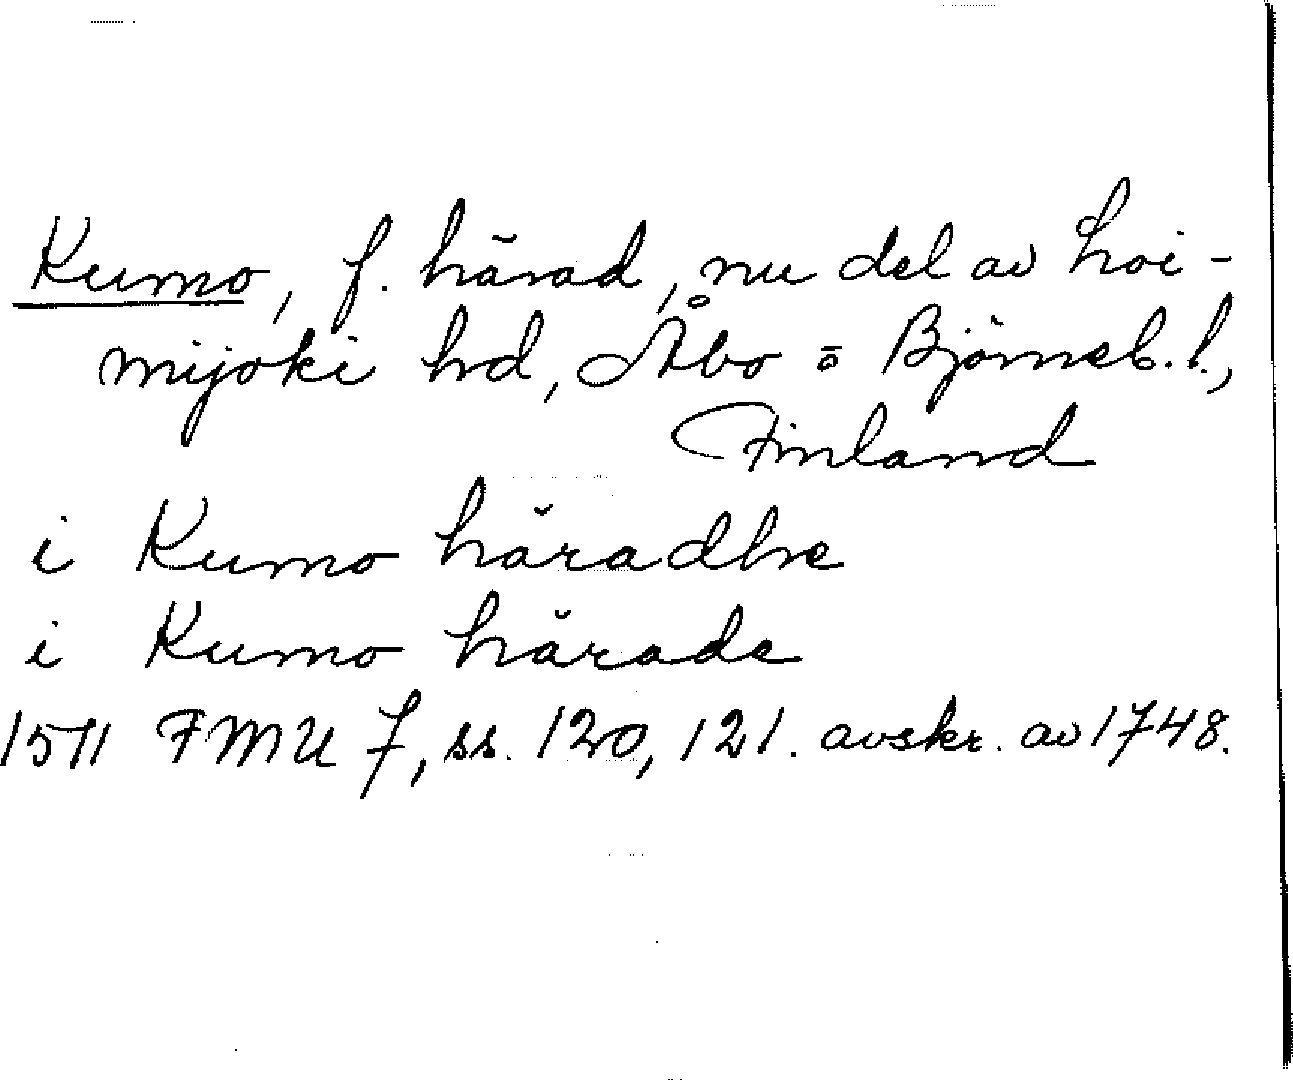 Kumo, f. härad, nu del av Loi-
mijoki hd, Åbo o Björneb. l.,
Finland
i Kumo häradhe
i Kumo härade
1511 FMU 7, ss. 120, 121. avskr. av 1748.